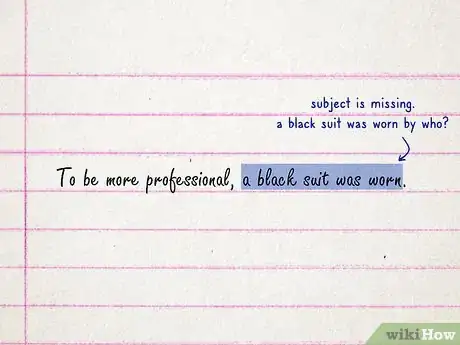 subject is missing.
a black suit was worn by who?
To be more professional, a black suit was worn.
wikiHow